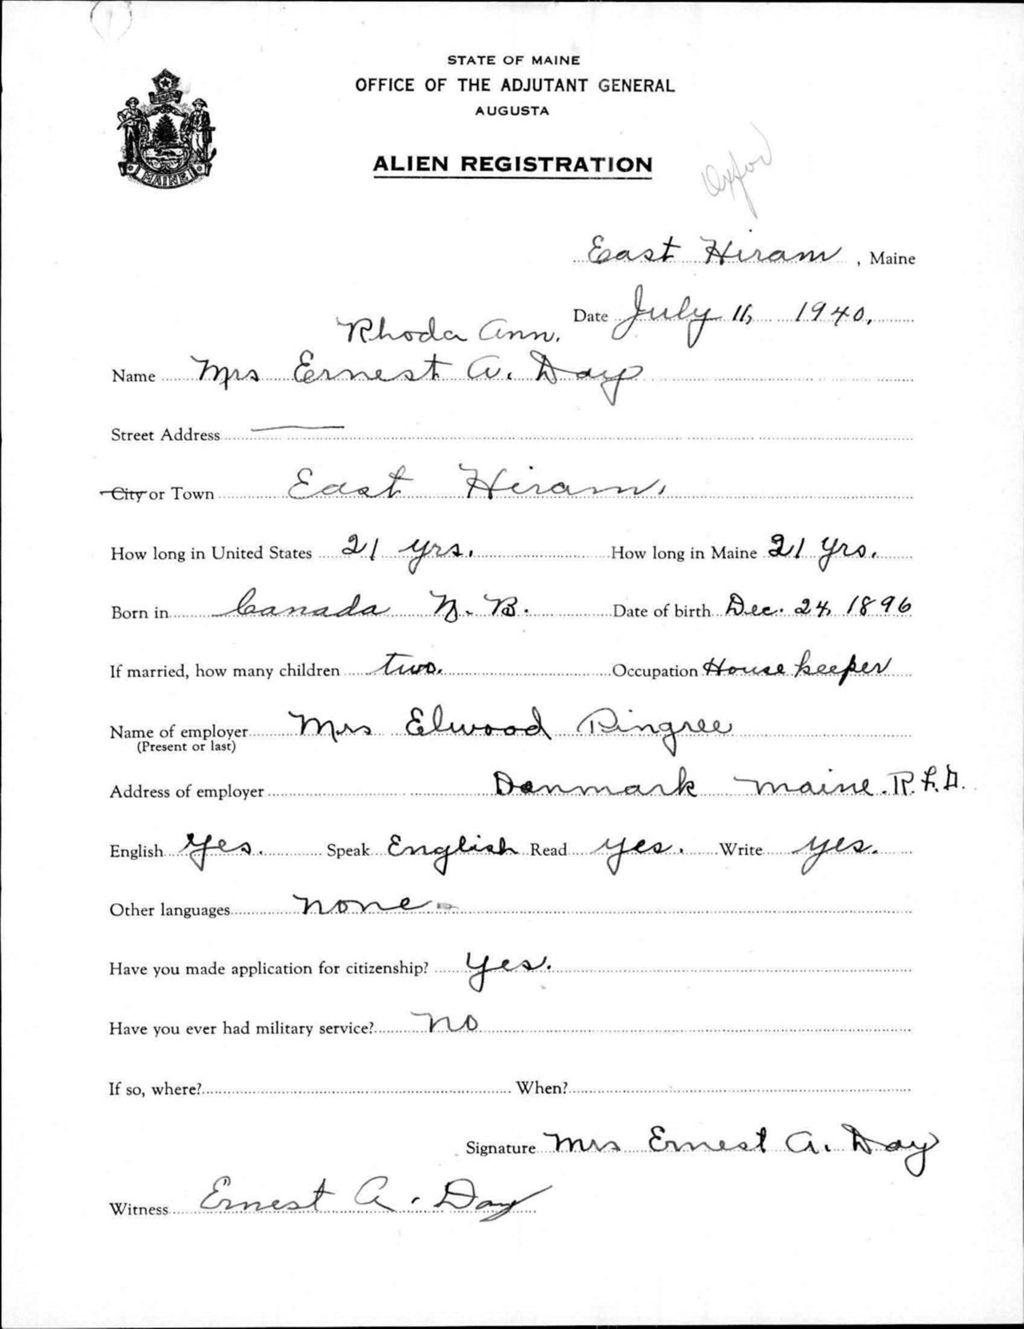 STATE OF MAINE
OFFICE OF THE ADJUTANT GENERAL
AUGUSTA
MAINE
ALIEN REGISTRATION
Oxford
East Hiram, Maine
Date July 11, 1940.
Rhoda Ann.
Name Mrs Ernest A. Day
Street Address
City or Town East Hiram.
How long in United States 21 yrs. How long in Maine 21 Yrs.
Born in Canada N. B. Date of birth Dec. 24, 1896
If married, how many children two. Occupation House keeper
Name of employer Mrs Elwood Pingree
(Present or last)
Address of employer Denmark Maine. R.F.D.
English Yes. Speak English Read yes. Write yes.
Other languages none
Have you made application for citizenship? Yes.
Have you ever had military service? No
If so, where? When?
Signature Mrs Ernest A. Day
Witness Ernest A. Day